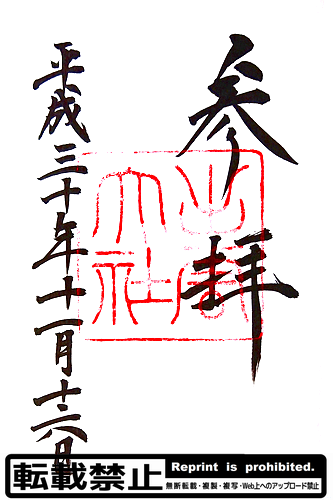 参拝
出雲
大社
平成三十年十一月十六日
転載禁止
Reprint is prohibited.
無断転載・複製・複写・Web上へのアップロード禁止